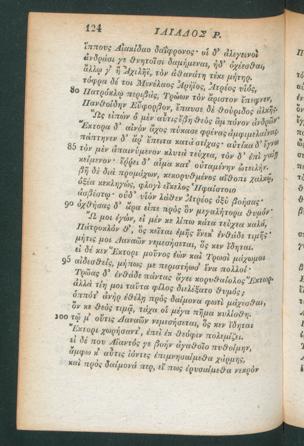 124 ΙΛΙΑΔΟΣ Ρ.
ἵππους Αἰακίδαο δαΐφρονος· οἱ δ' ἀλεγεινοὶ
ἀνδράσι γε θνητοῖσι δαμήμεναι, ἠδ' ὀχέεσθαι,
ἄλλῳ γ' ἢ Ἀχιλῆϊ, τὸν ἀθανάτη τέκε μήτηρ.
τόφρα δέ τοι Μενέλαος Ἀρήϊος, Ἀτρέος υἱὸς,
80 Πατρόκλῳ περιβὰς, Τρώων τὸν ἄριστον ἔπεφνεν,
Πανθοΐδην Εὔφορβον, ἔπαυσε δὲ θούριδος ἀλκῆς.
Ὣς εἰπὼν ὁ μὲν αὖτις ἔβη θεὸς ἂμ πόνον ἀνδρῶν·
Ἕκτορα δ' αἰνὸν ἄχος πύκασε φρένας ἀμφιμελαίνας·
πάπτηνεν δ' ἄρ' ἔπειτα κατὰ στίχας· αὐτίκα δ' ἔγνω
85 τὸν μὲν ἀπαινύμενον κλυτὰ τεύχεα, τὸν δ' ἐπὶ γαίῃ
κείμενον· ἔῤῥει δ' αἷμα κατ' οὐταμένην ὠτειλήν.
βῆ δὲ διὰ προμάχων, κεκορυθμένος αἴθοπι χαλκῷ,
ὀξέα κεκληγὼς, φλογὶ εἴκελος Ἡφαίστοιο
ἀσβέστῳ· οὐδ' υἱὸν λάθεν Ἀτρέος ὀξὺ βοήσας·
90 ὀχθήσας δ' ἄρα εἶπε πρὸς ὃν μεγαλήτορα θυμόν·
Ὤ μοι ἐγὼν, εἰ μέν κε λίπω κάτα τεύχεα καλὰ,
Πάτροκλόν θ', ὃς κεῖται ἐμῆς ἕνεκ' ἐνθάδε τιμῆς·
μήτις μοι Δαναῶν νεμεσήσεται, ὅς κεν ἴδηται.
εἰ δέ κεν Ἕκτορι μοῦνος ἐὼν καὶ Τρωσὶ μάχωμαι
95 αἰδεσθεὶς, μήπως με περιστήωσ' ἕνα πολλοί·
Τρῶας δ' ἐνθάδε πάντας ἄγει κορυθαίολος Ἕκτωρ.
ἀλλὰ τίη μοι ταῦτα φίλος διελέξατο θυμός;
ὁππότ' ἀνὴρ ἐθέλῃ πρὸς δαίμονα φωτὶ μάχεσθαι,
ὅν κε θεὸς τιμᾷ, τάχα οἱ μέγα πῆμα κυλίσθη.
100 τῷ μ' οὔτις Δαναῶν νεμεσήσεται, ὅς κεν ἴδηται
Ἕκτορι χωρήσαντ', ἐπεὶ ἐκ θεόφιν πολεμίζει.
εἰ δέ που Αἴαντός γε βοὴν ἀγαθοῖο πυθοίμην,
ἄμφω κ' αὖτις ἰόντες ἐπιμνησαίμεθα χάρμης,
καὶ πρὸς δαίμονά περ, εἴ πως ἐρυσαίμεθα νεκρὸν